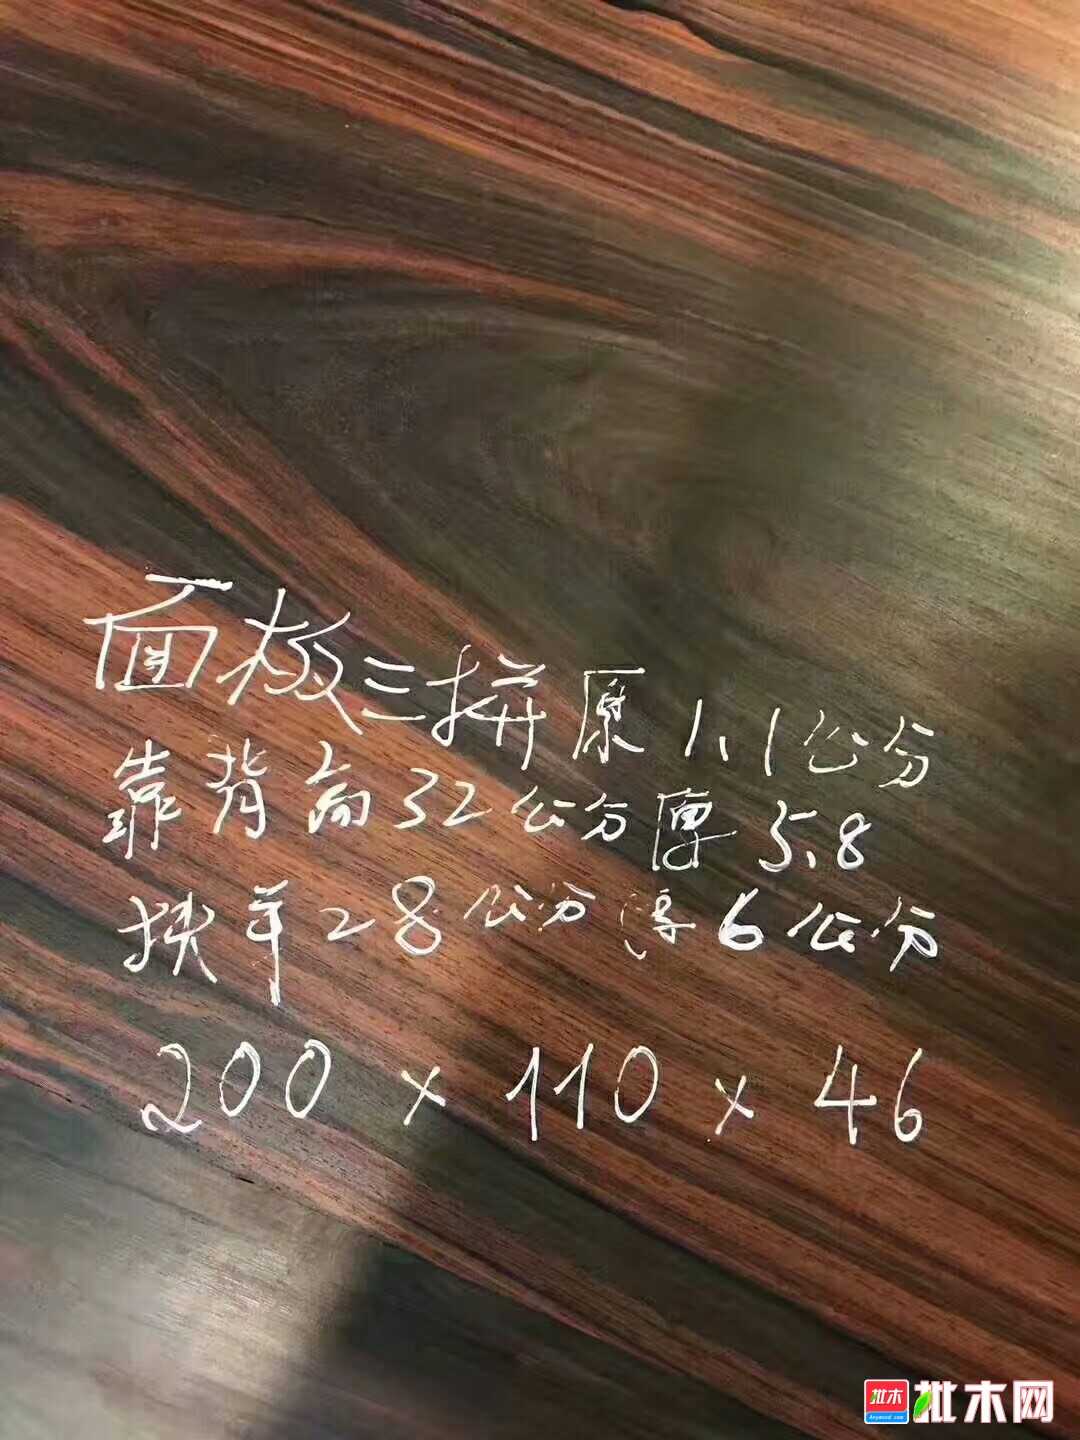 面板三拼厚1.1公分
靠背高32公分厚5.8
扶手28公分厚6公分
200 × 110 × 46
批木
Anywood.com
批木网